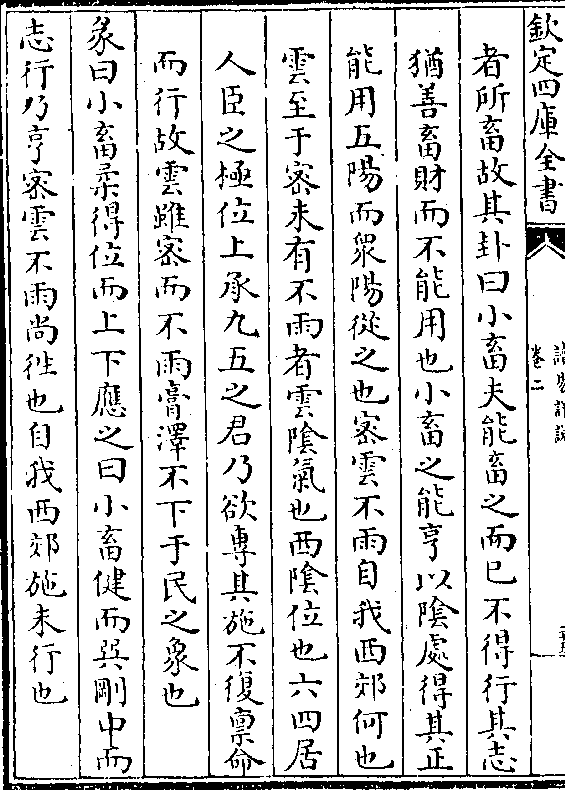 欽定四庫全書
卷二
者所畜故其卦曰小畜夫能畜之而已不得行其志
猶善畜財而不能用也小畜之能亨以陰處得其正
能用五陽而衆陽從之也宻雲不雨自我西郊何也
雲至于宻未有不雨者雲陰氣也西陰位也六四居
人臣之極位上承九五之君乃欲專其施不復禀命
而行故雲雖宻而不雨膏澤不下于民之象也
彖曰小畜柔得位而上下應之曰小畜健而巽剛中而
志行乃亨宻雲不雨尚徃也自我西郊施未行也